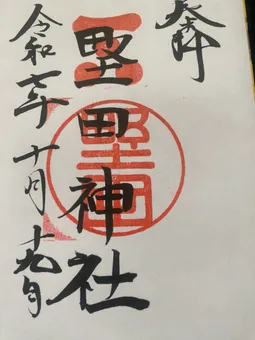 奉拝
野田神社
令和七年十月十九日